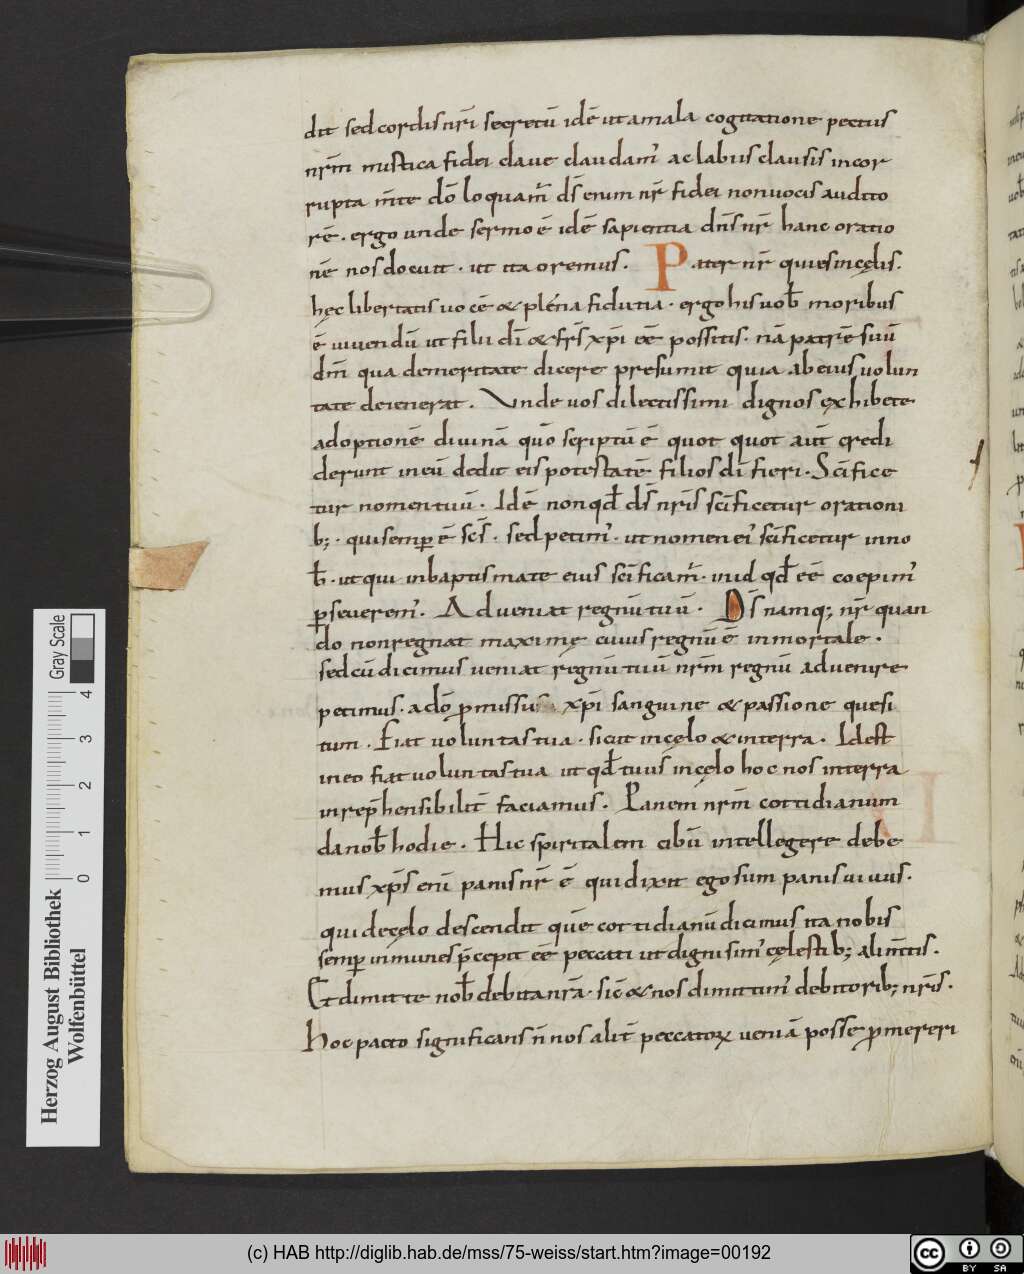 dit sed cordis nr̄i secretū idē ut a mala cogitatione pectus
nrm̄ mistica fidei clave claudam' ac labiis clausis incor
rupta m̄te dō loquam̄ ds̄ enim nr̄ fidei non vocis audito
rē · ergo unde sermo ē idē sapientia dn̄s nr̄ hanc oratio
nē nos docuit · ut ita oremus · Pater nr̄ qui es in cęlis ·
hęc libertatis vocē & plena fidutia · ergo his vob̄ moribus
ē vivendū ut filii dī & frs̄ xp̄i eē possitis · nā patrē suū
dm̄ qua demeritate dicere presumit qui a ab eius volun
tate deienerat · Unde vos dilectissimi dignos exhibete
adoptionē divinā quō scriptū ē quot quot aut̄ credi
derunt in eū dedit eis potestatē filios dī fieri · Sc̄ifice
tur nomen tuū · Idē non qd̄ ds̄ nr̄is sc̄ificetur orationi
b; · qui semp̄ ē sc̄s · sed petim' · ut nomen ei' sc̄ificetur in no
b̄ · ut qui in baptismate eius sc̄ificam̄ · in id qd̄ eē coepim'
p̱severem' · Adveniat regnū tuū · Ds̄ namq; nr̄ quan
do non regnat maximę cuius regnū ē inmortale ·
sed cū dicimus veniat regnū tuū nr̄m regnū advenire
petimus · a dō p̱missu xp̄i sanguine & passione quesi
tum · Fiat voluntas tua · sicut in cęlo & in terra · Id est
in eo fiat voluntas tua ut qd̄ tuus in cęlo hoc nos in terra
inrep̄hensibilit̄ faciamus · Panem nrm̄ cottidianum
da nob̄ hodie · Hic spiritalem cibū intellegere debe
mus xp̄s enī panis nr̄ ē qui dixit ego sum panis vivus ·
qui de cęlo descendit quē cottidianū dicimus ita nobis
semp̄ inmunes p̄cepit eē peccati ut digni sim' cęlestib; alim̄tis ·
Et dimitte nob̄ debita nr̄a · sic̄ & nos dimittim' debitorib; nr̄is ·
Hoc pacto significans n̄ nos alit̄ peccatoꝝ veniā posse p̱mereri
Gray Scale
0 1 2 3 4
Herzog August Bibliothek
Wolfenbüttel
(c) HAB http://diglib.hab.de/mss/75-weiss/start.htm?image=00192
cc BY SA